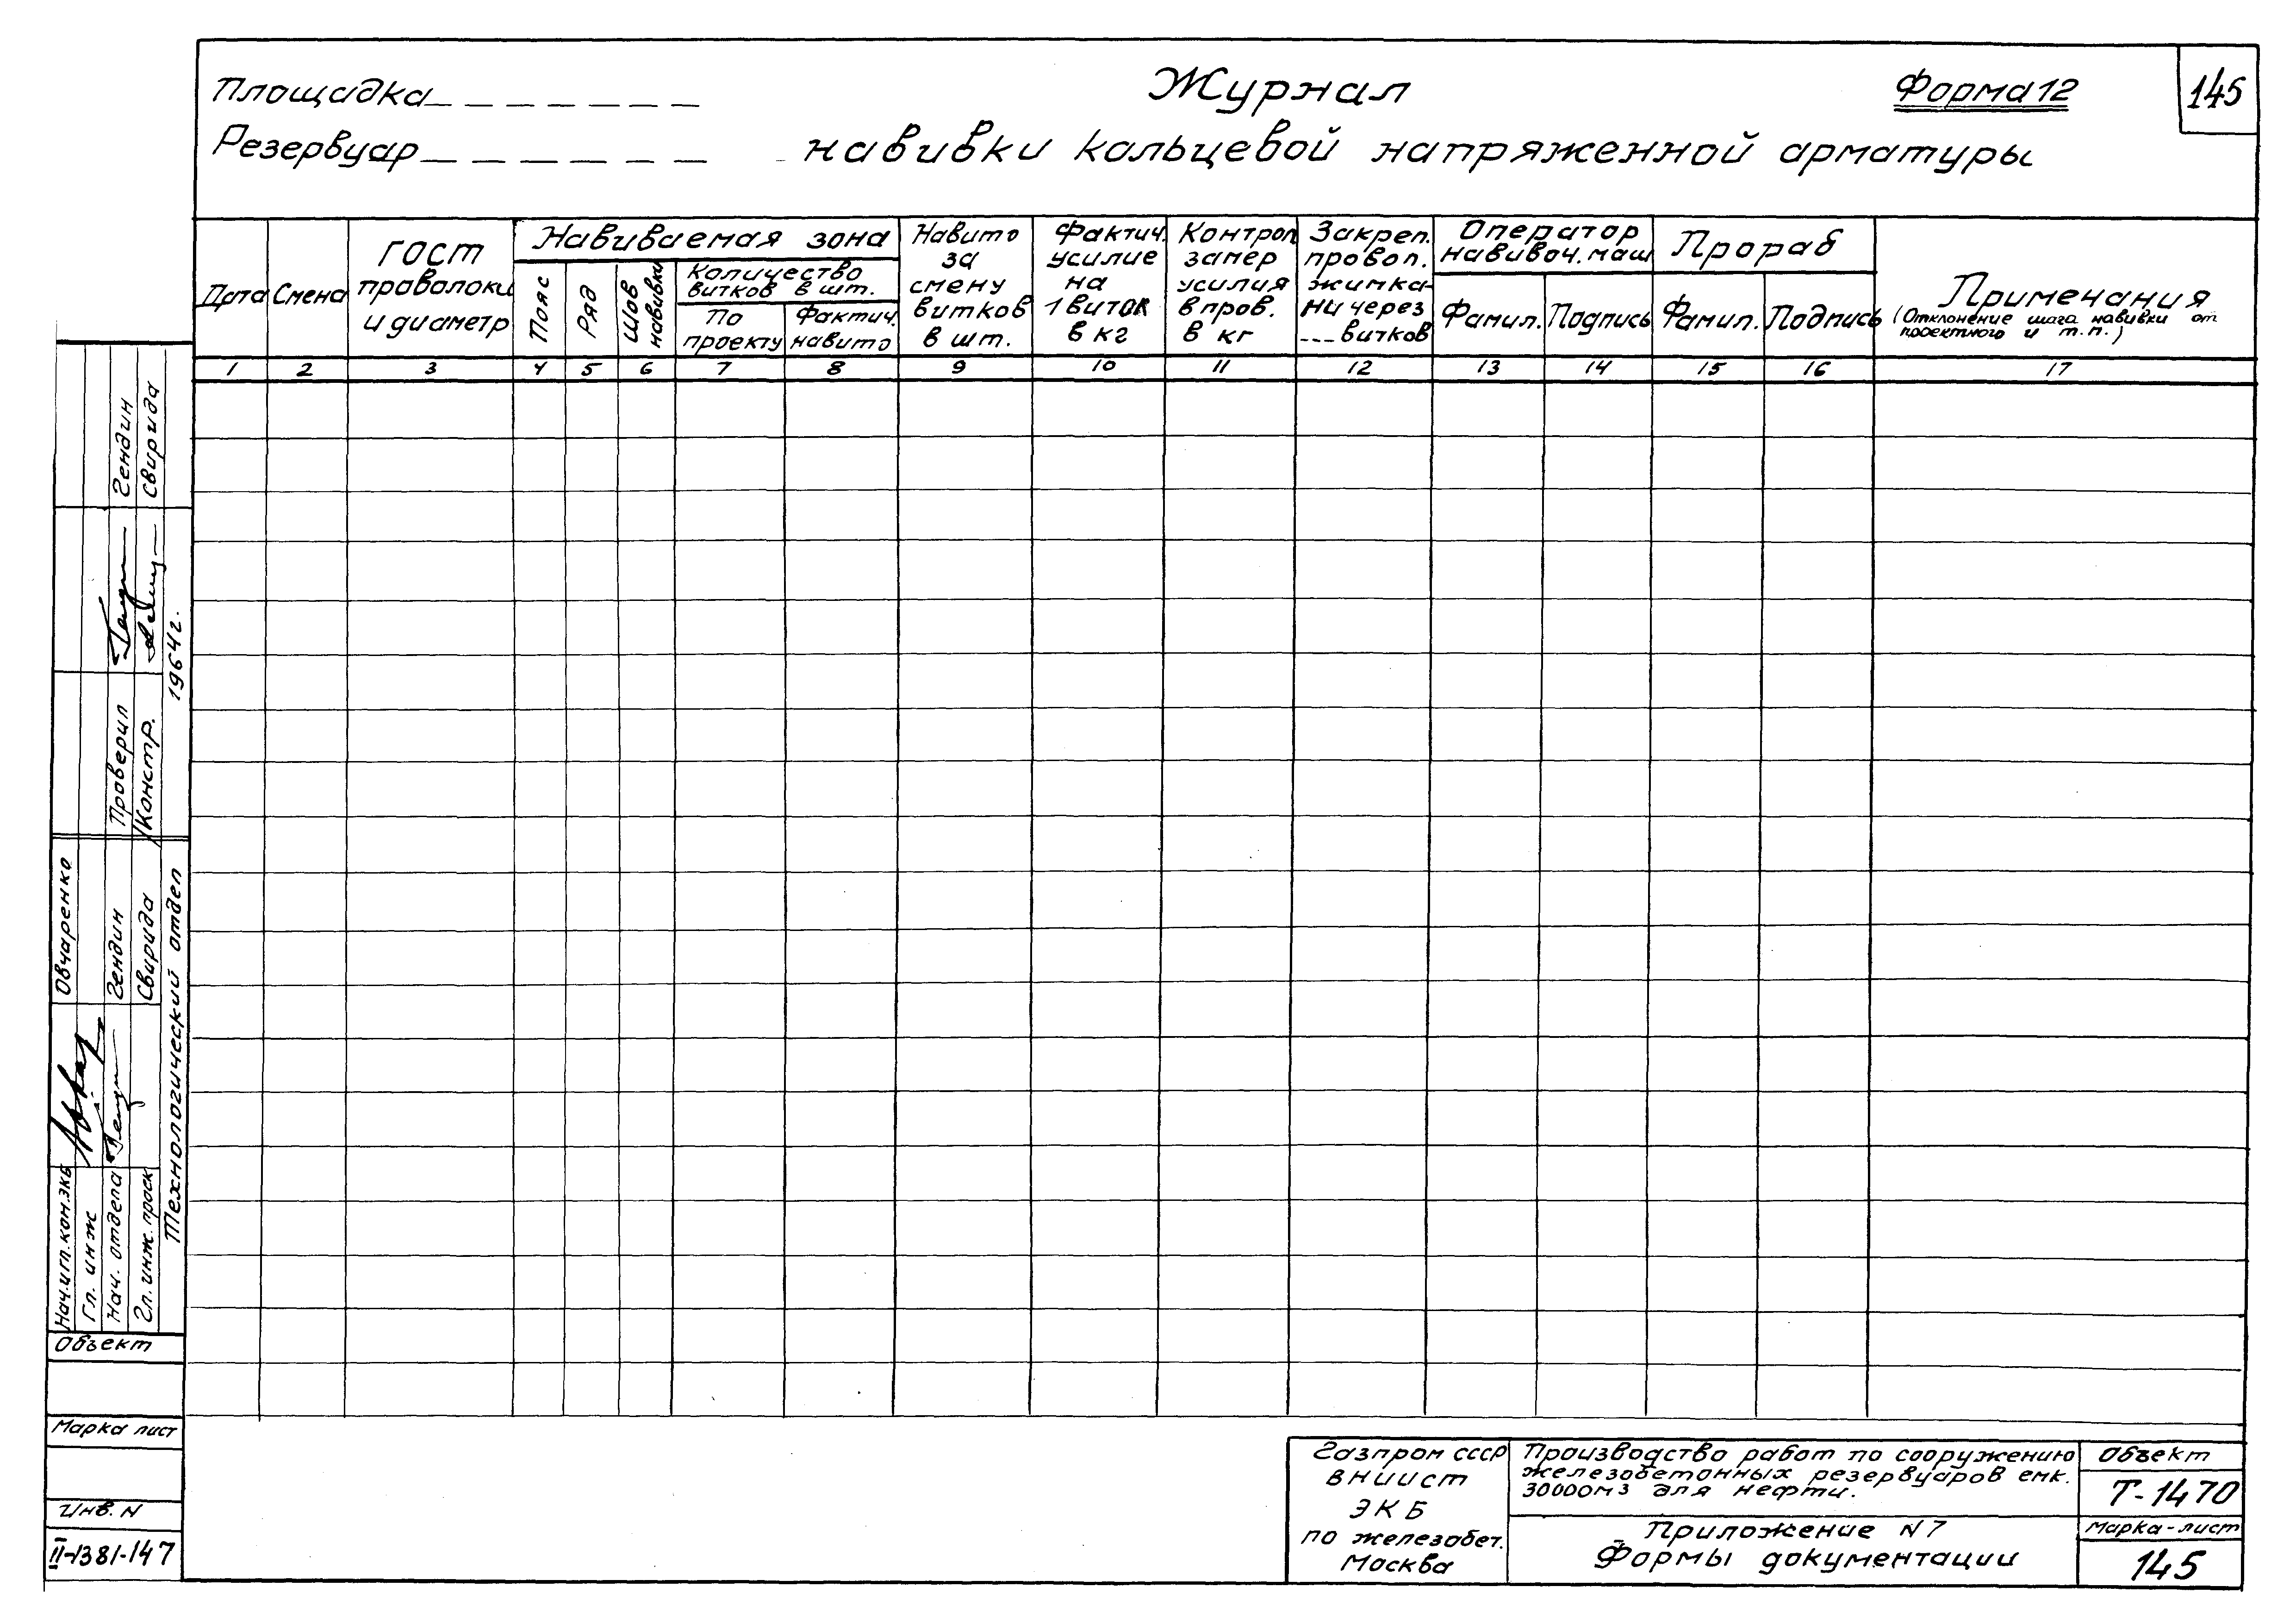 Площадка
Журнал
Форма 12
145
Резервуар
навивки кольцевой напряженной арматуры
Дата
Смена
ГОСТ
проволоки
и диаметр
Навиваемая зона
Пояс
Ряд
Шов
навивки
Количество
витков в шт.
По
проекту
Фактич.
навито
Навито
за
смену
витков
в шт.
Фактич.
усилие
на
1 виток
в кг
Контрол.
замер
усилия
в пров.
в кг
Закреп.
провол.
жимка-
ми через
---витков
Оператор
навивоч. маш
Фамил.
Подпись
Прораб
Фамил.
Подпись
Примечания
(Отклонение шага навивки от
проектного и т.п.)
1 2 3 4 5 6 7 8 9 10 11 12 13 14 15 16 17
Гендин
Свирида
Проверил
Констр.
1964г.
Овчаренко
Гендин
Свирида
Нач.и гл.кон.экб
Гл. инж
Нач. отдела
Гл. инж. проек
Технологический отдел
Объект
Марка лист
Инв. N
II-1381-147
Газпром СССР
ВНИИСТ
ЭКБ
по железобет.
Москва
Производство работ по сооружению
железобетонных резервуаров емк.
30000м3 для нефти.
Приложение N7
Формы документации
Объект
Т-1470
Марка-лист
145